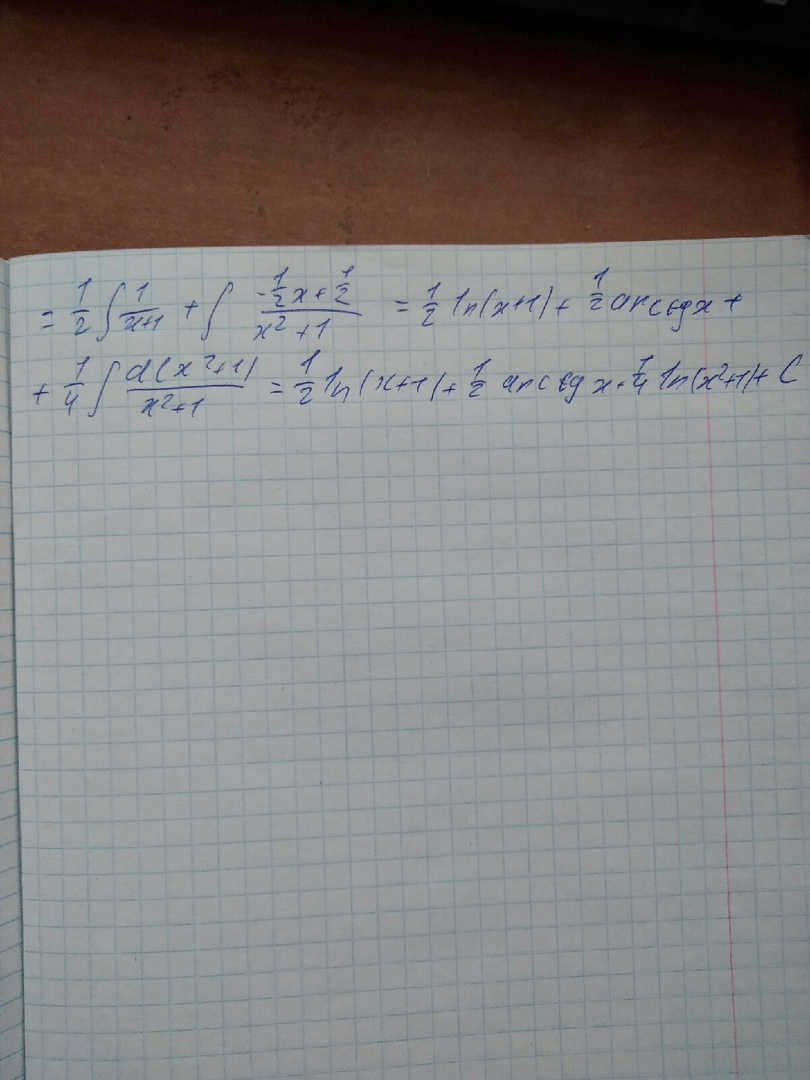 = 1/2 ∫ 1/(x+1) + ∫ (-1/2 x + 1/2)/(x² + 1) = 1/2 ln(x+1) + 1/2 arcctg x +
+ 1/4 ∫ d(x²+1)/(x²+1) = 1/2 ln(x+1) + 1/2 arcctg x + 1/4 ln(x²+1) + C